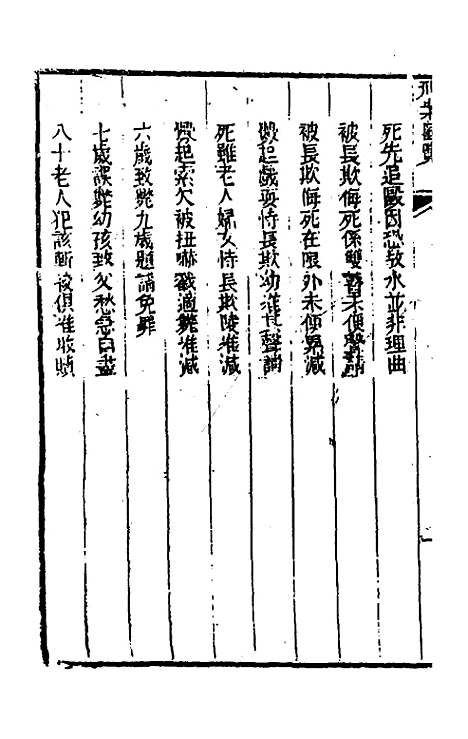 刑案匯覽
死先追毆因恐致水並非理曲
被長欺侮死係雙瞽未便聲請
被長欺侮死在限外未便累減
釁起戲耍恃長欺幼准其聲請
死雖老人婦女恃長欺陵准減
釁起索欠被扭嚇戳適斃准減
六歲致斃九歲題請免罪
七歲誤斃幼孩致父愁急自盡
八十老人犯該斬設俱准收贖